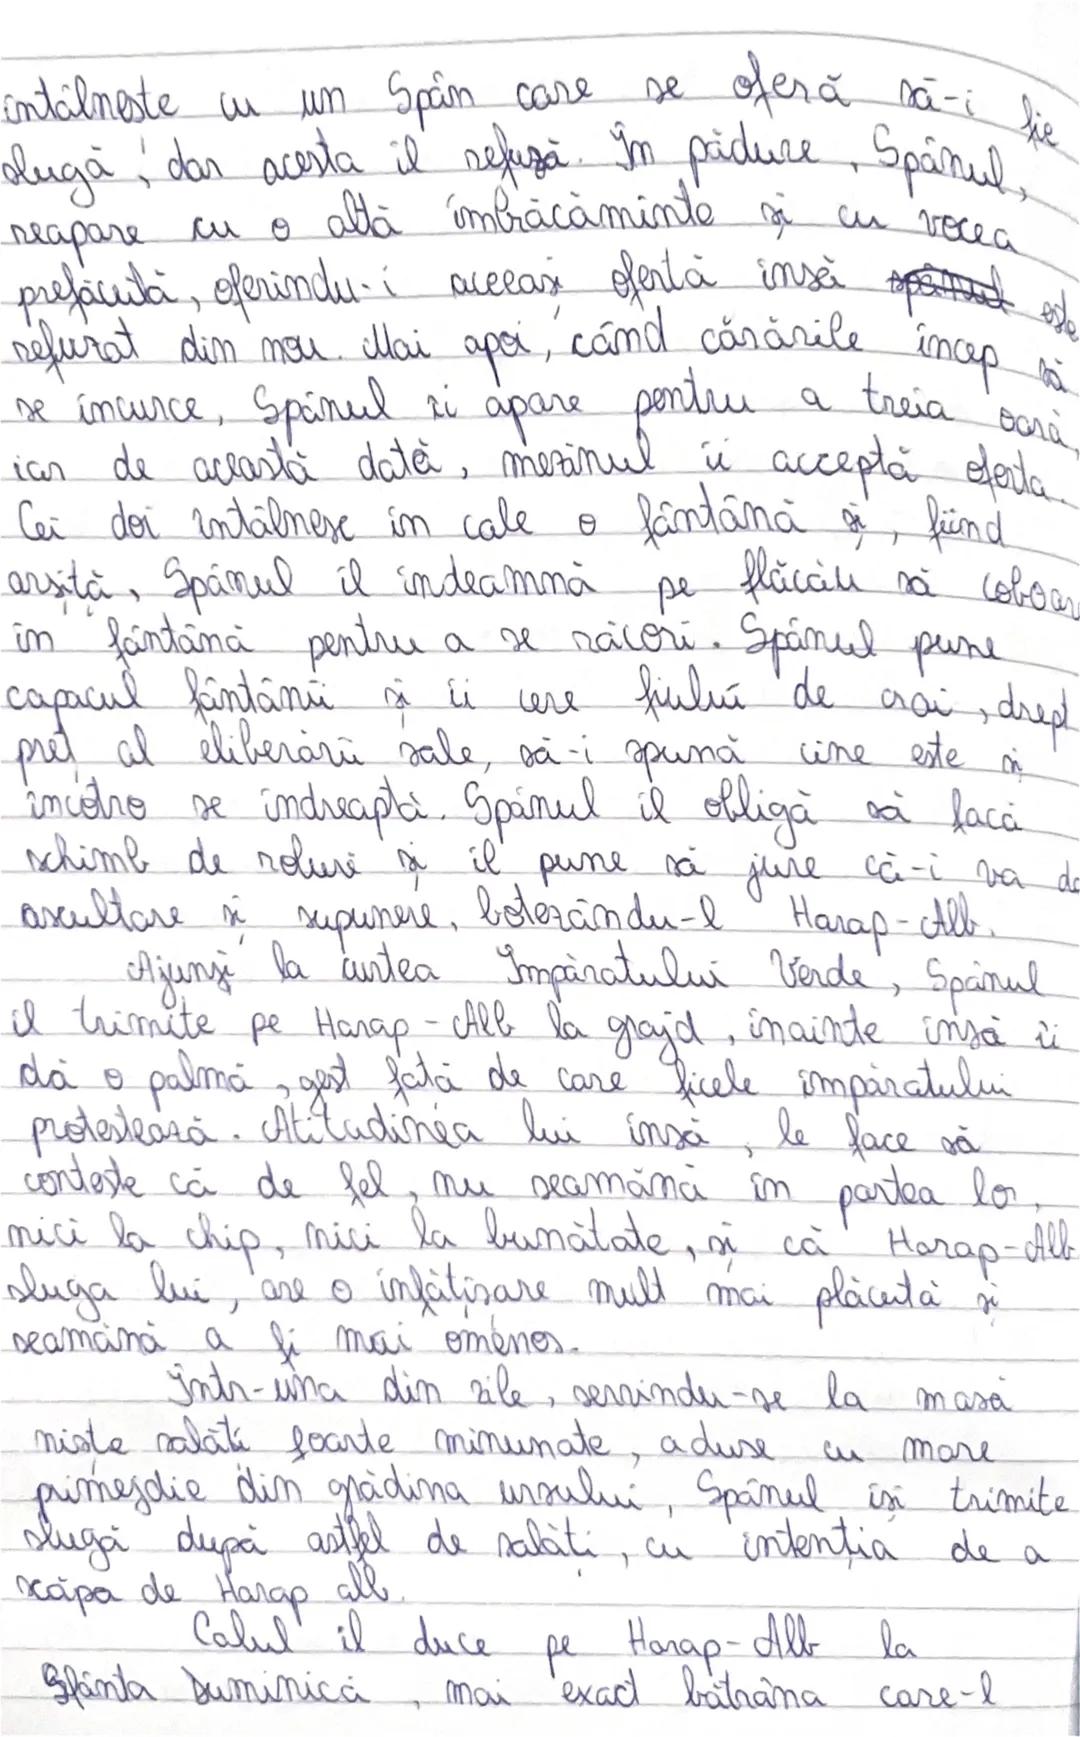 intâlneste cu un Spân care se oferă să-i fie
slugă, dar acesta îl refuză. În pădure, Spânul,
reapare cu o altă îmbrăcăminte și cu vocea
prefăcută, oferindu-i aceeași ofertă însă este
refuzat din nou. Mai apoi, când cărările încep să
se încurce, Spânul îi apare pentru a treia oară,
iar de această dată, mezinul îi acceptă oferta.
Cei doi întâlnesc în cale o fântână și, fiind
arșiță, Spânul îl îndeamnă pe flăcău să coboar
în fântână pentru a se răcori. Spânul pune
capacul fântânii și îi cere fiului de crai, drept
preț al eliberării sale, să-i spună cine este și
încotro se îndreaptă. Spânul îl obligă să facă
schimb de roluri și îl pune să jure că-i va da
ascultare și supunere, botezându-l Harap-Alb.
Ajunși la curtea Împăratului Verde, Spânul
îl trimite pe Harap-Alb la grajd, înainte însă îi
dă o palmă, gest față de care ficele împăratului
protestează. Atitudinea lui însă, le face să
conteste că de fel, nu seamănă în partea lor,
nici la chip, nici la bunătate, și că Harap-Alb
sluga lui, are o înfățișare mult mai plăcută și
seamănă a fi mai omenos.
Într-una din zile, servindu-se la masă
niște salăți foarte minunate, aduse cu mare
primejdie din grădina ursului, Spânul își trimite
slugă după astfel de salăți, cu intenția de a
scăpa de Harap alb.
Calul îl duce pe Harap-Alb la
Sfânta Duminică, mai exact bătrâna care-l